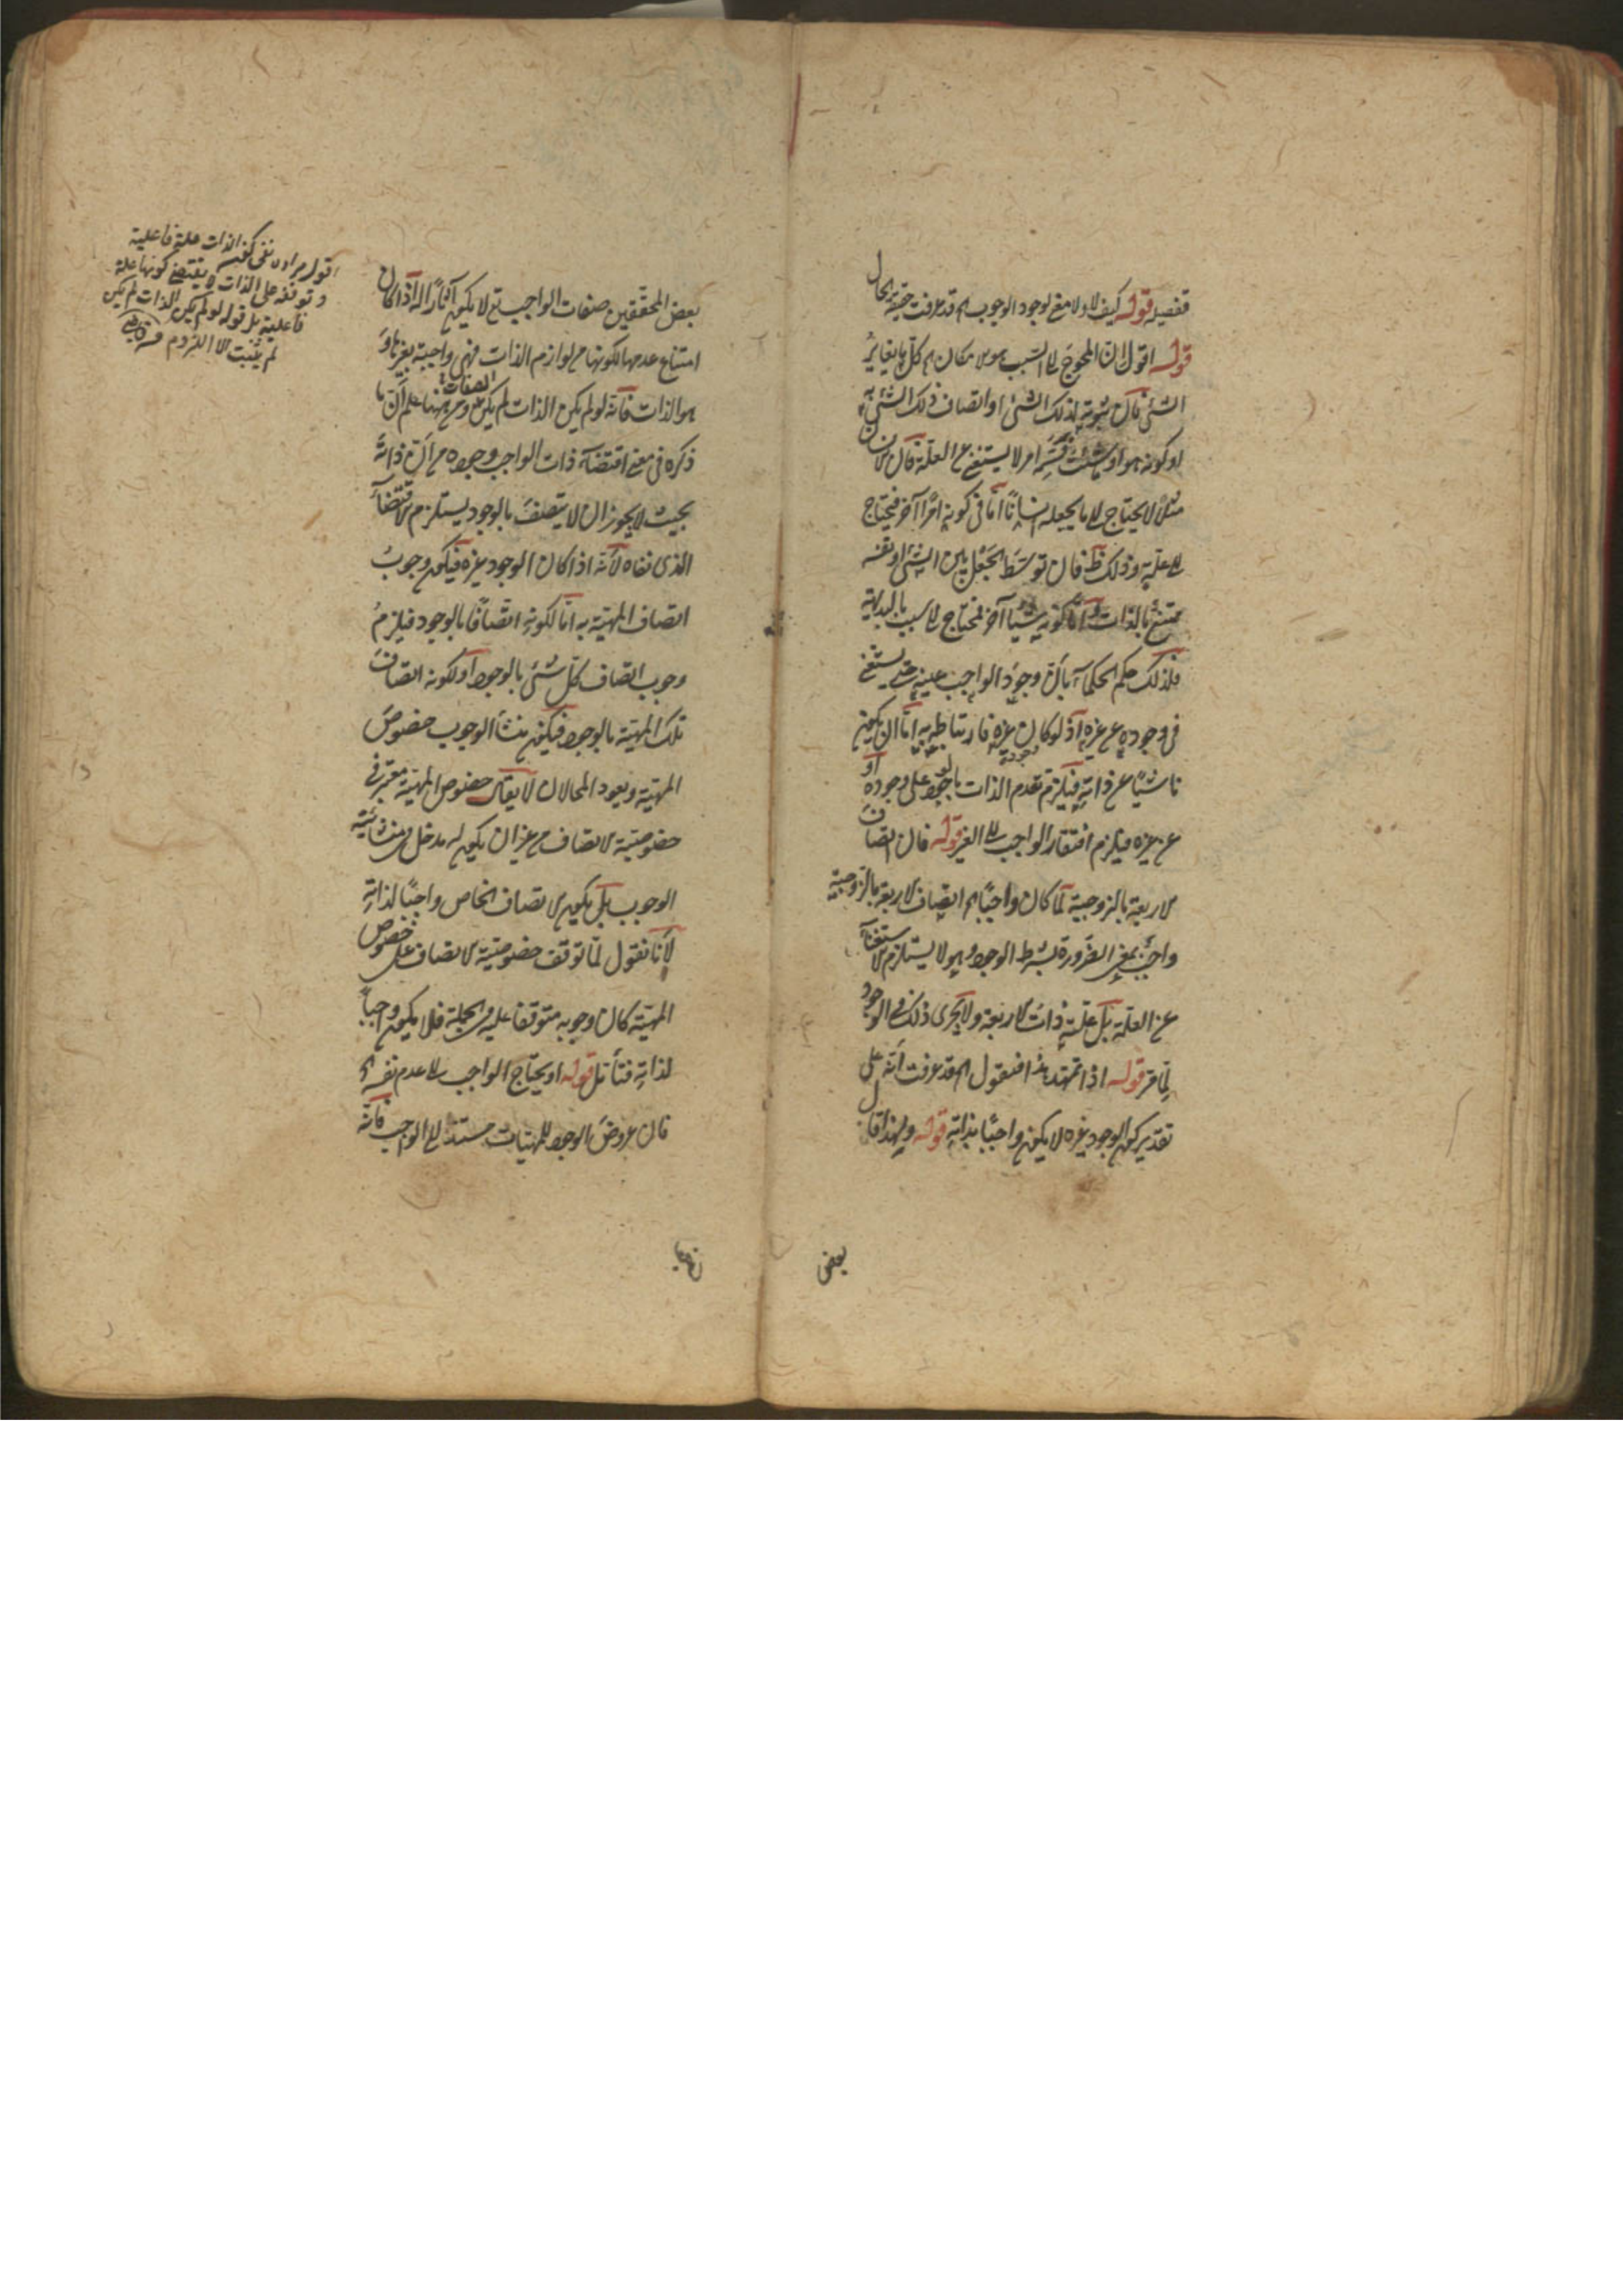 تفصيله قوله كيف لا ولا معنى لوجود الوجوب الخ قد عرفت حقيقة الحال
قوله اقول ان المحوج الى السبب هو الامكان الخ كل ما يغاير
الشئ فان ثبوته لذلك الشئ او اتصاف ذلك الشئ به
او كونه هو او ما شئت فسمه امر لا يستغنى عن العلة فان الانسان
مثلا لا يحتاج الى ما يجعله انسانا اما فى كونه امرا آخر فيحتاج
الى علة وذلك ظ فان توسط الجعل بين الشئ ونفسه
ممتنع بالذات واما كونه شيئا آخر فمحتاج الى سبب بالبديهة
فلذلك حكم الحكمآء بان وجود الواجب عينه حتى يستغنى
فى وجوده عن غيره اذ لو كان غيره فارتباطه به اما ان يكون
ناشيا عن ذاته فيلزم تقدم الذات بالوجود على وجوده او
عن غيره فيلزم افتقار الواجب الى الغير قوله فان اتصاف
الاربعة بالزوجية لما كان واجبا الخ اتصاف الاربعة بالزوجية
واجب بمعنى الضرورة بشرط الوجود وهو لا يستلزم الاستغنآء
عن العلة بل علته ذات الاربعة ولا يجرى ذلك فى الوجود
لما مر قوله اذا تمهد هذا فنقول الخ قد عرفت انه على
تقدير كون الوجود غيره لا يكون واجبا بذاته قوله ولهذا قال
بعض
بعض المحققين صفات الواجب تع لا يكون آثارا له اذا كان
امتناع عدمها لكونها من لوازم الذات فهى واجبة بغيرها و
هو الذات فانه لو لم يكن الذات لم يكن الصفات ومن ههنا علم ان ما
ذكره فى معنى اقتضآء ذات الواجب وجوده من ان ذاته
بحيث لا يجوز ان لا يتصف بالوجود يستلزم الاقتضآء
الذى نفاه لانه اذا كان الوجود غيره فيكون وجوب
اتصاف المهية به اما لكونه اتصافا بالوجود فيلزم
وجوب اتصاف كل شئ بالوجود او لكونه اتصاف
تلك المهية بالوجود فيكون منشأ الوجوب خصوص
المهية ويعود المحالان لا يقال خصوص المهية معتبر فى
خصوصية الاتصاف من غير ان يكون له مدخل فى منشائية
الوجوب بل يكون الاتصاف الخاص واجبا لذاته
لانا نقول لما توقف خصوصية الاتصاف على خصوص
المهية كان وجوبه متوقفا عليه فى الجملة فلا يكون واجبا
لذاته فتأمل قوله او يحتاج الواجب الى عدم نفسه الخ
فان عروض الوجود للمهيات مستند الى الواجب فانه
اقول مراده نفى كون الذات علة فاعلية
وتوقفه على الذات لا يقتضى كونها علة
فاعلية بل قوله لو لم يكن الذات لم يكن
لم يثبت الا اللزوم